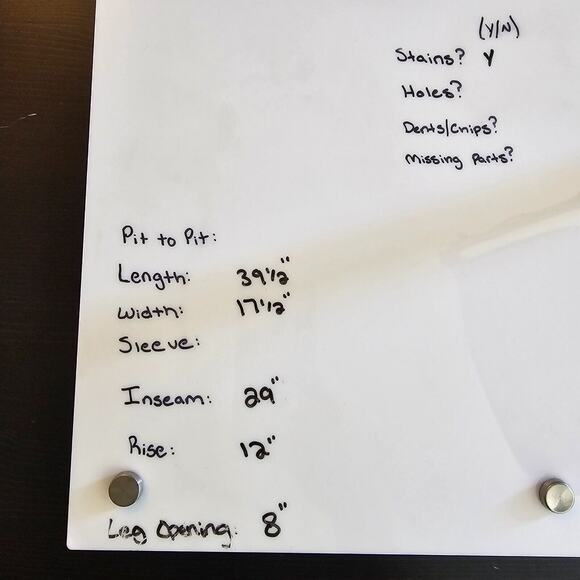 (Y/N)
Stains? Y
Holes?
Dents/Chips?
Missing Parts?
Pit to Pit:
Length: 39 1/2"
Width: 17 1/2"
Sleeve:
Inseam: 29"
Rise: 12"
Leg Opening: 8"